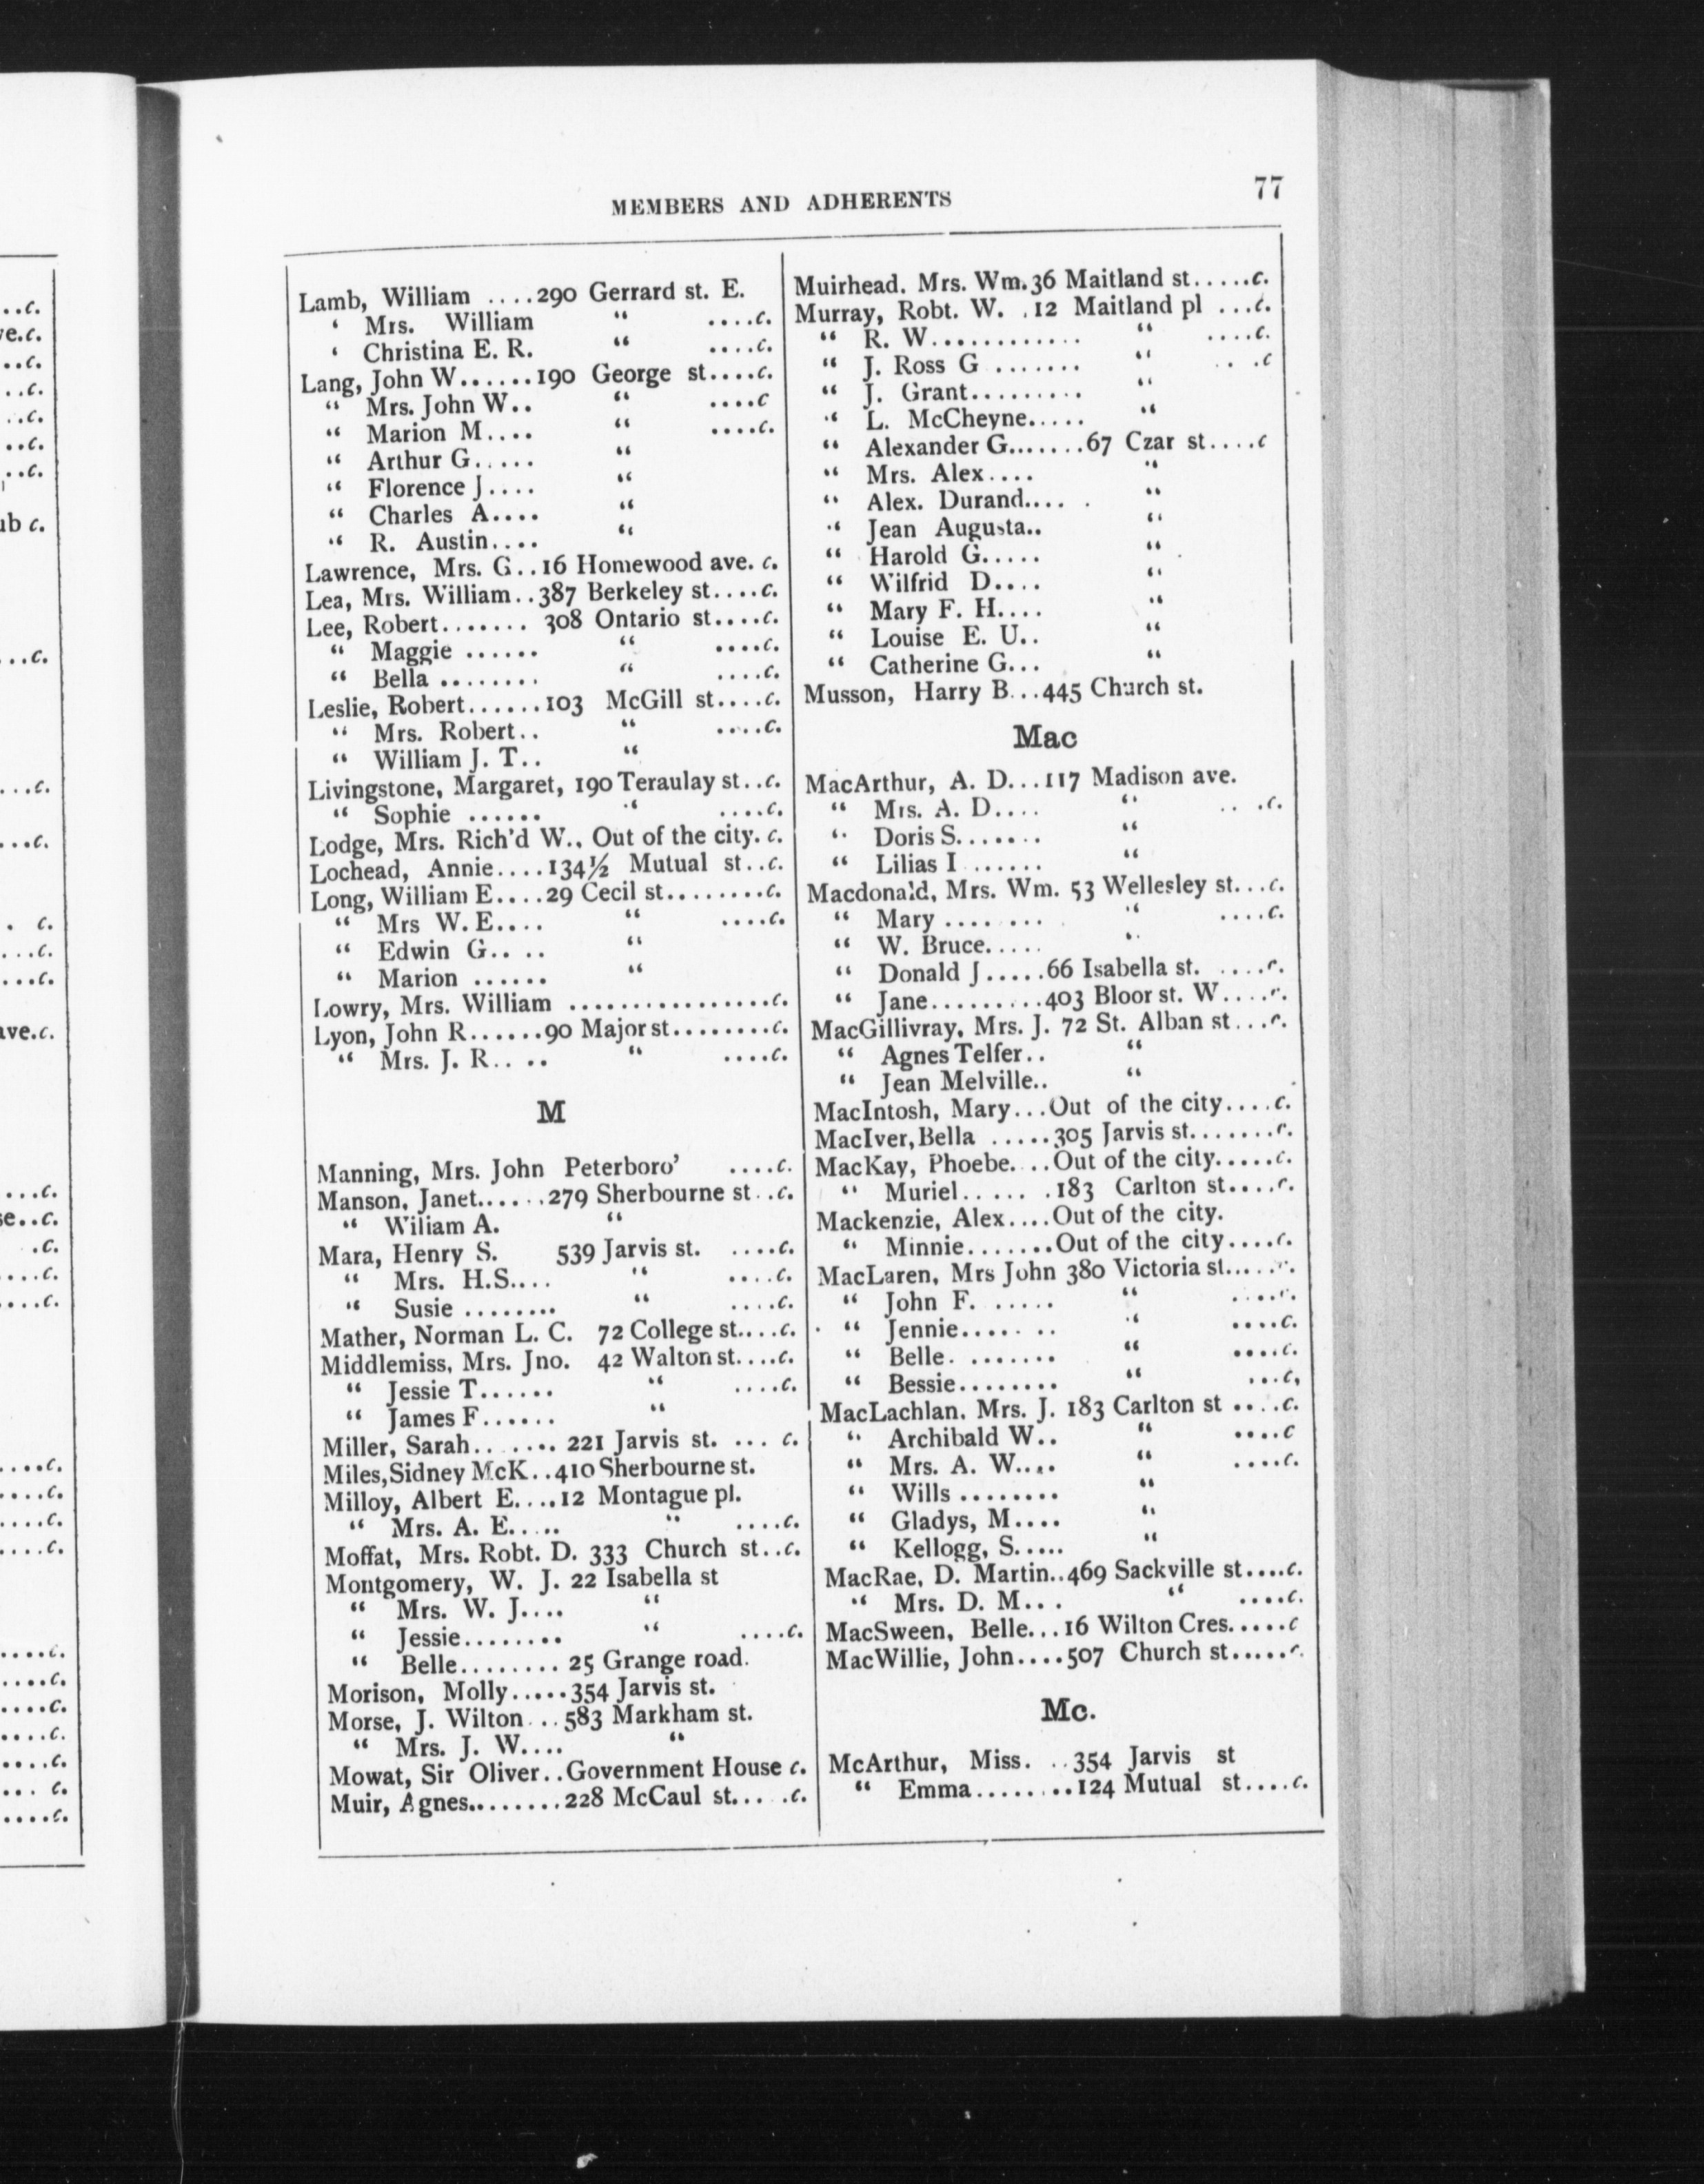 MEMBERS AND ADHERENTS
77
Lamb, William ....290 Gerrard st. E.
‘ Mrs. William “ ....c.
‘ Christina E. R. “ ....c.
Lang, John W......190 George st....c.
“ Mrs. John W.. “ ....c
“ Marion M.... “ ....c.
“ Arthur G..... “
“ Florence J.... “
“ Charles A.... “
“ R. Austin.... “
Lawrence, Mrs. G..16 Homewood ave. c.
Lea, Mrs. William..387 Berkeley st....c.
Lee, Robert....... 308 Ontario st....c.
“ Maggie ...... “ ....c.
“ Bella ........ “ ....c.
Leslie, Robert......103 McGill st....c.
“ Mrs. Robert.. “ ....c.
“ William J. T.. “
Livingstone, Margaret, 190 Teraulay st..c.
“ Sophie ...... “ ....c.
Lodge, Mrs. Rich'd W.. Out of the city. c.
Lochead, Annie....134½ Mutual st..c.
Long, William E....29 Cecil st.........c.
“ Mrs W. E.... “ ....c.
“ Edwin G.. .. “
“ Marion ...... “
Lowry, Mrs. William ................c.
Lyon, John R......90 Major st........c.
“ Mrs. J. R.. .. “ ....c.
M
Manning, Mrs. John Peterboro' ....c.
Manson, Janet......279 Sherbourne st..c.
“ Wiliam A. “
Mara, Henry S. 539 Jarvis st. ....c.
“ Mrs. H.S.... “ ....c.
“ Susie ........ “ ....c.
Mather, Norman L. C. 72 College st....c.
Middlemiss, Mrs. Jno. 42 Walton st....c.
“ Jessie T...... “ ....c.
“ James F...... “
Miller, Sarah.. ..... 221 Jarvis st. ... c.
Miles, Sidney McK..410 Sherbourne st.
Milloy, Albert E....12 Montague pl.
“ Mrs. A. E..... “ ....c.
Moffat, Mrs. Robt. D. 333 Church st..c.
Montgomery, W. J. 22 Isabella st
“ Mrs. W. J.... “
“ Jessie........ “ ....c.
“ Belle........ 25 Grange road.
Morison, Molly.....354 Jarvis st.
Morse, J. Wilton...583 Markham st.
“ Mrs. J. W.... “
Mowat, Sir Oliver..Government House c.
Muir, Agnes........228 McCaul st.....c.
Muirhead. Mrs. Wm.36 Maitland st.....c.
Murray, Robt. W. .12 Maitland pl ...c.
“ R. W............ “ ....c.
“ J. Ross G ....... “ .. .c
“ J. Grant......... “
“ L. McCheyne..... “
“ Alexander G.......67 Czar st....c
“ Mrs. Alex.... “
“ Alex. Durand.... . “
“ Jean Augusta.. “
“ Harold G..... “
“ Wilfrid D.... “
“ Mary F. H.... “
“ Louise E. U.. “
“ Catherine G... “
Musson, Harry B...445 Church st.
Mac
MacArthur, A. D...117 Madison ave.
“ Mrs. A. D.... “ .. .c.
“ Doris S....... “
“ Lilias I ...... “
Macdonald, Mrs. Wm. 53 Wellesley st...c.
“ Mary ........ “ ....c.
“ W. Bruce..... “
“ Donald J.....66 Isabella st. ....c.
“ Jane..........403 Bloor st. W....c.
MacGillivray, Mrs. J. 72 St. Alban st...c.
“ Agnes Telfer.. “
“ Jean Melville.. “
MacIntosh, Mary...Out of the city....c.
MacIver, Bella .....305 Jarvis st.......c.
MacKay, Phoebe....Out of the city.....c.
“ Muriel...... .183 Carlton st....c.
Mackenzie, Alex....Out of the city.
“ Minnie.......Out of the city....c.
MacLaren, Mrs John 380 Victoria st......c.
“ John F. ...... “ ....c.
“ Jennie..... .. “ ....c.
“ Belle. ....... “ ....c.
“ Bessie........ “ ...c,
MacLachlan. Mrs. J. 183 Carlton st ....c.
“ Archibald W.. “ ....c
“ Mrs. A. W.... “ ....c.
“ Wills ........ “
“ Gladys, M.... “
“ Kellogg, S..... “
MacRae, D. Martin..469 Sackville st....c.
“ Mrs. D. M... “ ....c.
MacSween, Belle...16 Wilton Cres.....c
MacWillie, John....507 Church st.....c.
Mc.
McArthur, Miss. ..354 Jarvis st
“ Emma.........124 Mutual st....c.